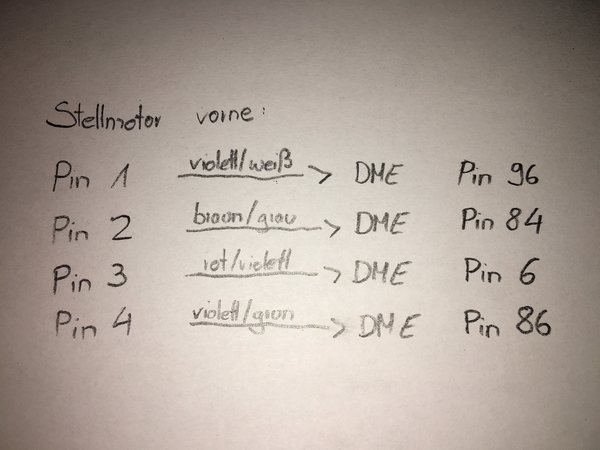 Stellmotor vorne:
Pin 1 violett/weiß > DME Pin 96
Pin 2 braun/grau > DME Pin 84
Pin 3 rot/violett > DME Pin 6
Pin 4 violett/grün > DME Pin 86